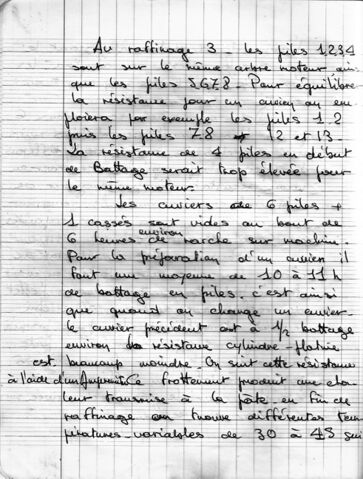 Au raffinage 3 - les piles 1234
sont sur le même arbre moteur ain-
que les piles 5678. Pour équilibre
la résistance pour un cuvier on em
ploiera par exemple les piles 12
puis les piles 78 12 et 13
La résistance de 4 piles en début
de Battage serait trop élevée pour
le même moteur.
Les cuviers de 6 piles +
1 cassés sont vides au bout de
6 heures environ de marche sur machine.
Pour la préparation d'un cuvier il
faut une moyenne de 10 à 11 h
de battage en piles. c'est ainsi
que quand on change un cuvier
le cuvier précédent est à 1/2 battage
environ la résistance cylindre-platine
est beaucoup moindre. On suit cette résistance
à l'aide d'un Ce frottement produit une cha
leur transmise à la pâte. en fin de
raffinage on trouve différentes tem
pératures variables de 30 à 45 qui